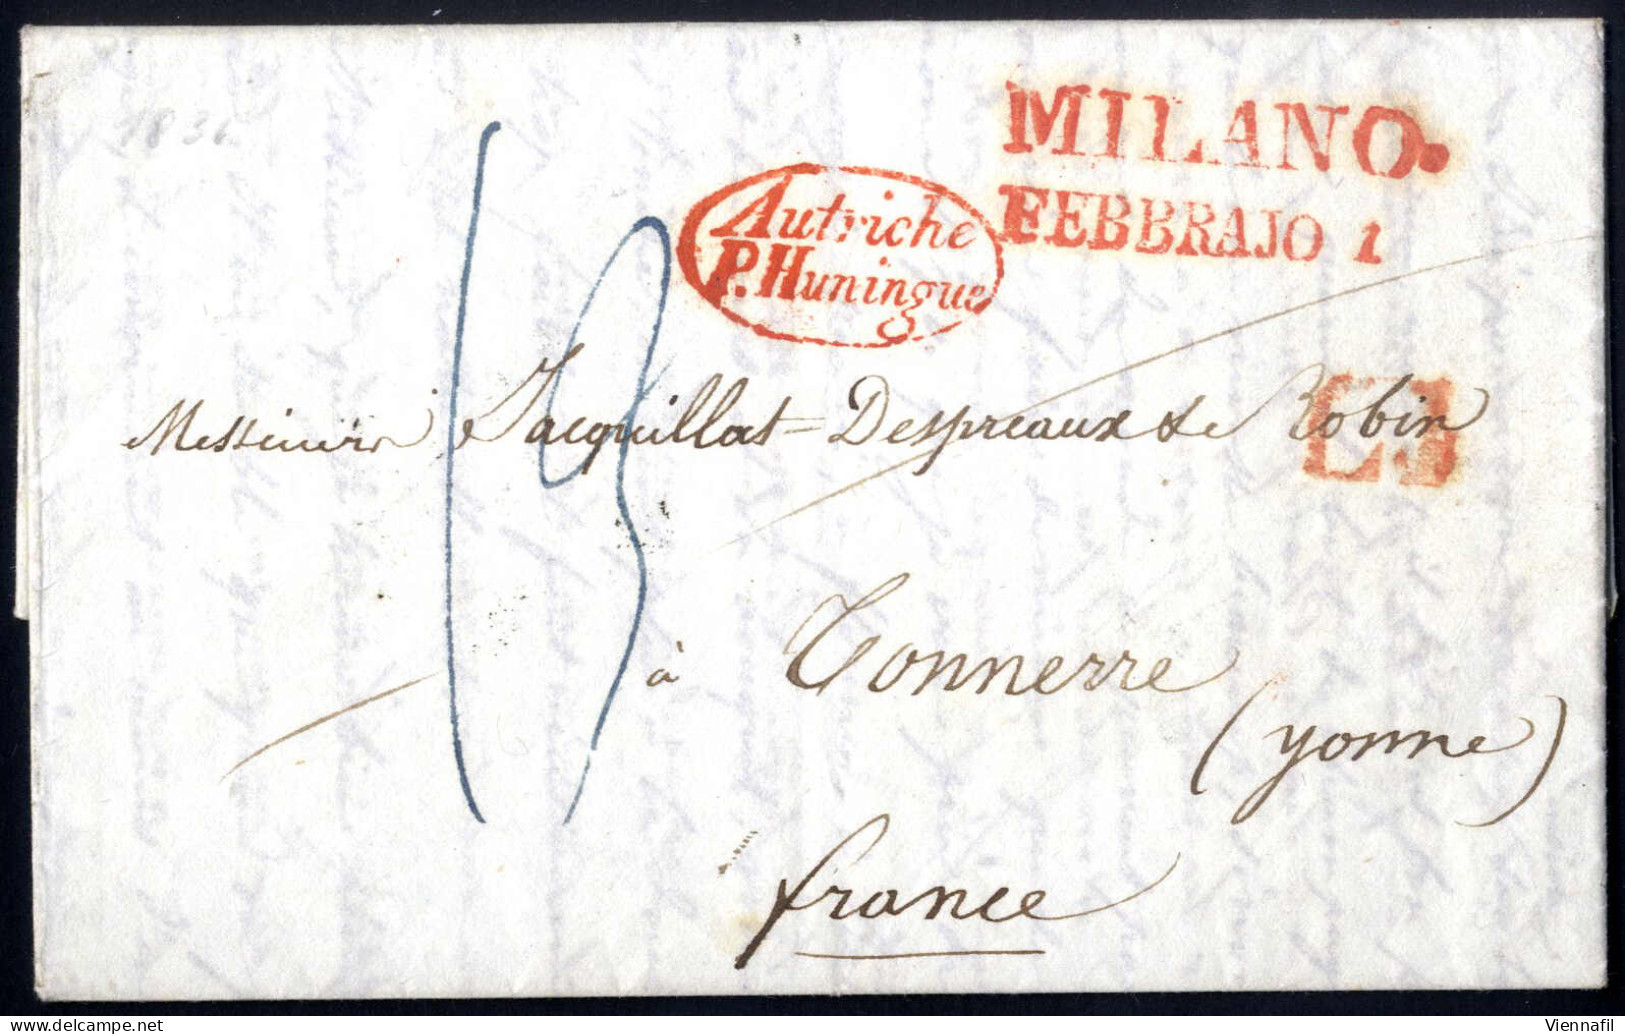 MILANO.
FEBBRAJO 1
Autriche
P. Huningue
13
Messieurs Jacquillat=Despreaux & Robin
à Tonnerre
(yonne)
france
Viennafil